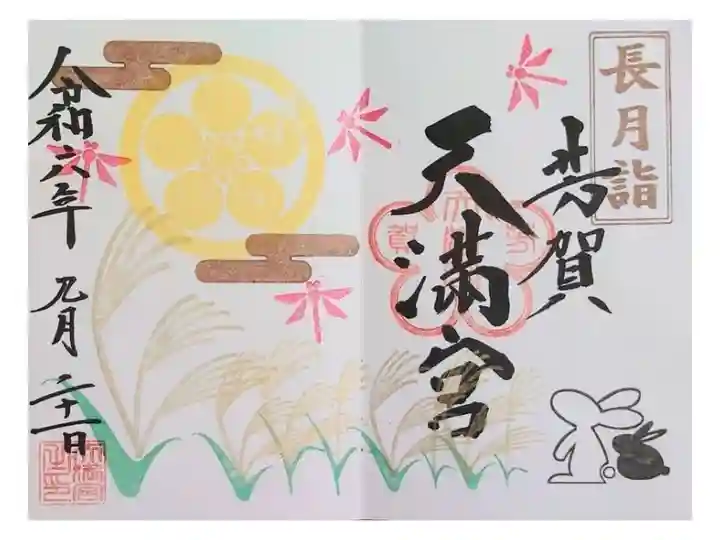 長月詣
芳賀
天満宮
令和六年
九月
二十一日